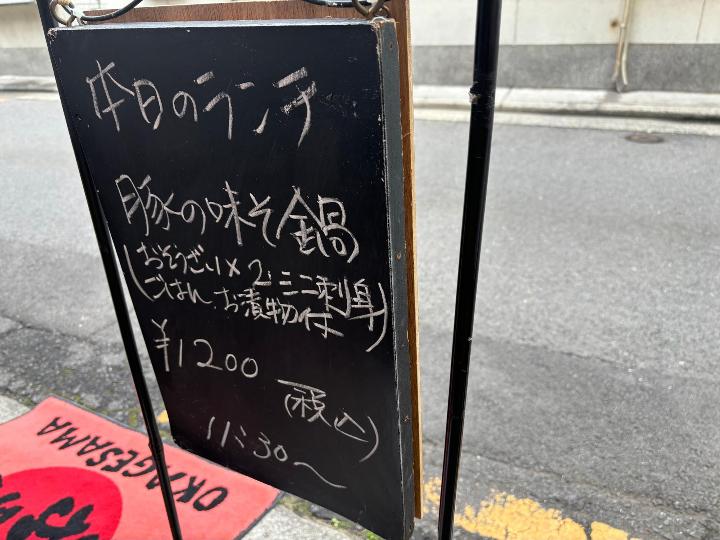 本日のランチ
豚の味そ鍋
(おそうざい×2・ミニ刺身
ごはん、お漬物付)
¥1200
(税込)
11:30〜
OKAGESAMA